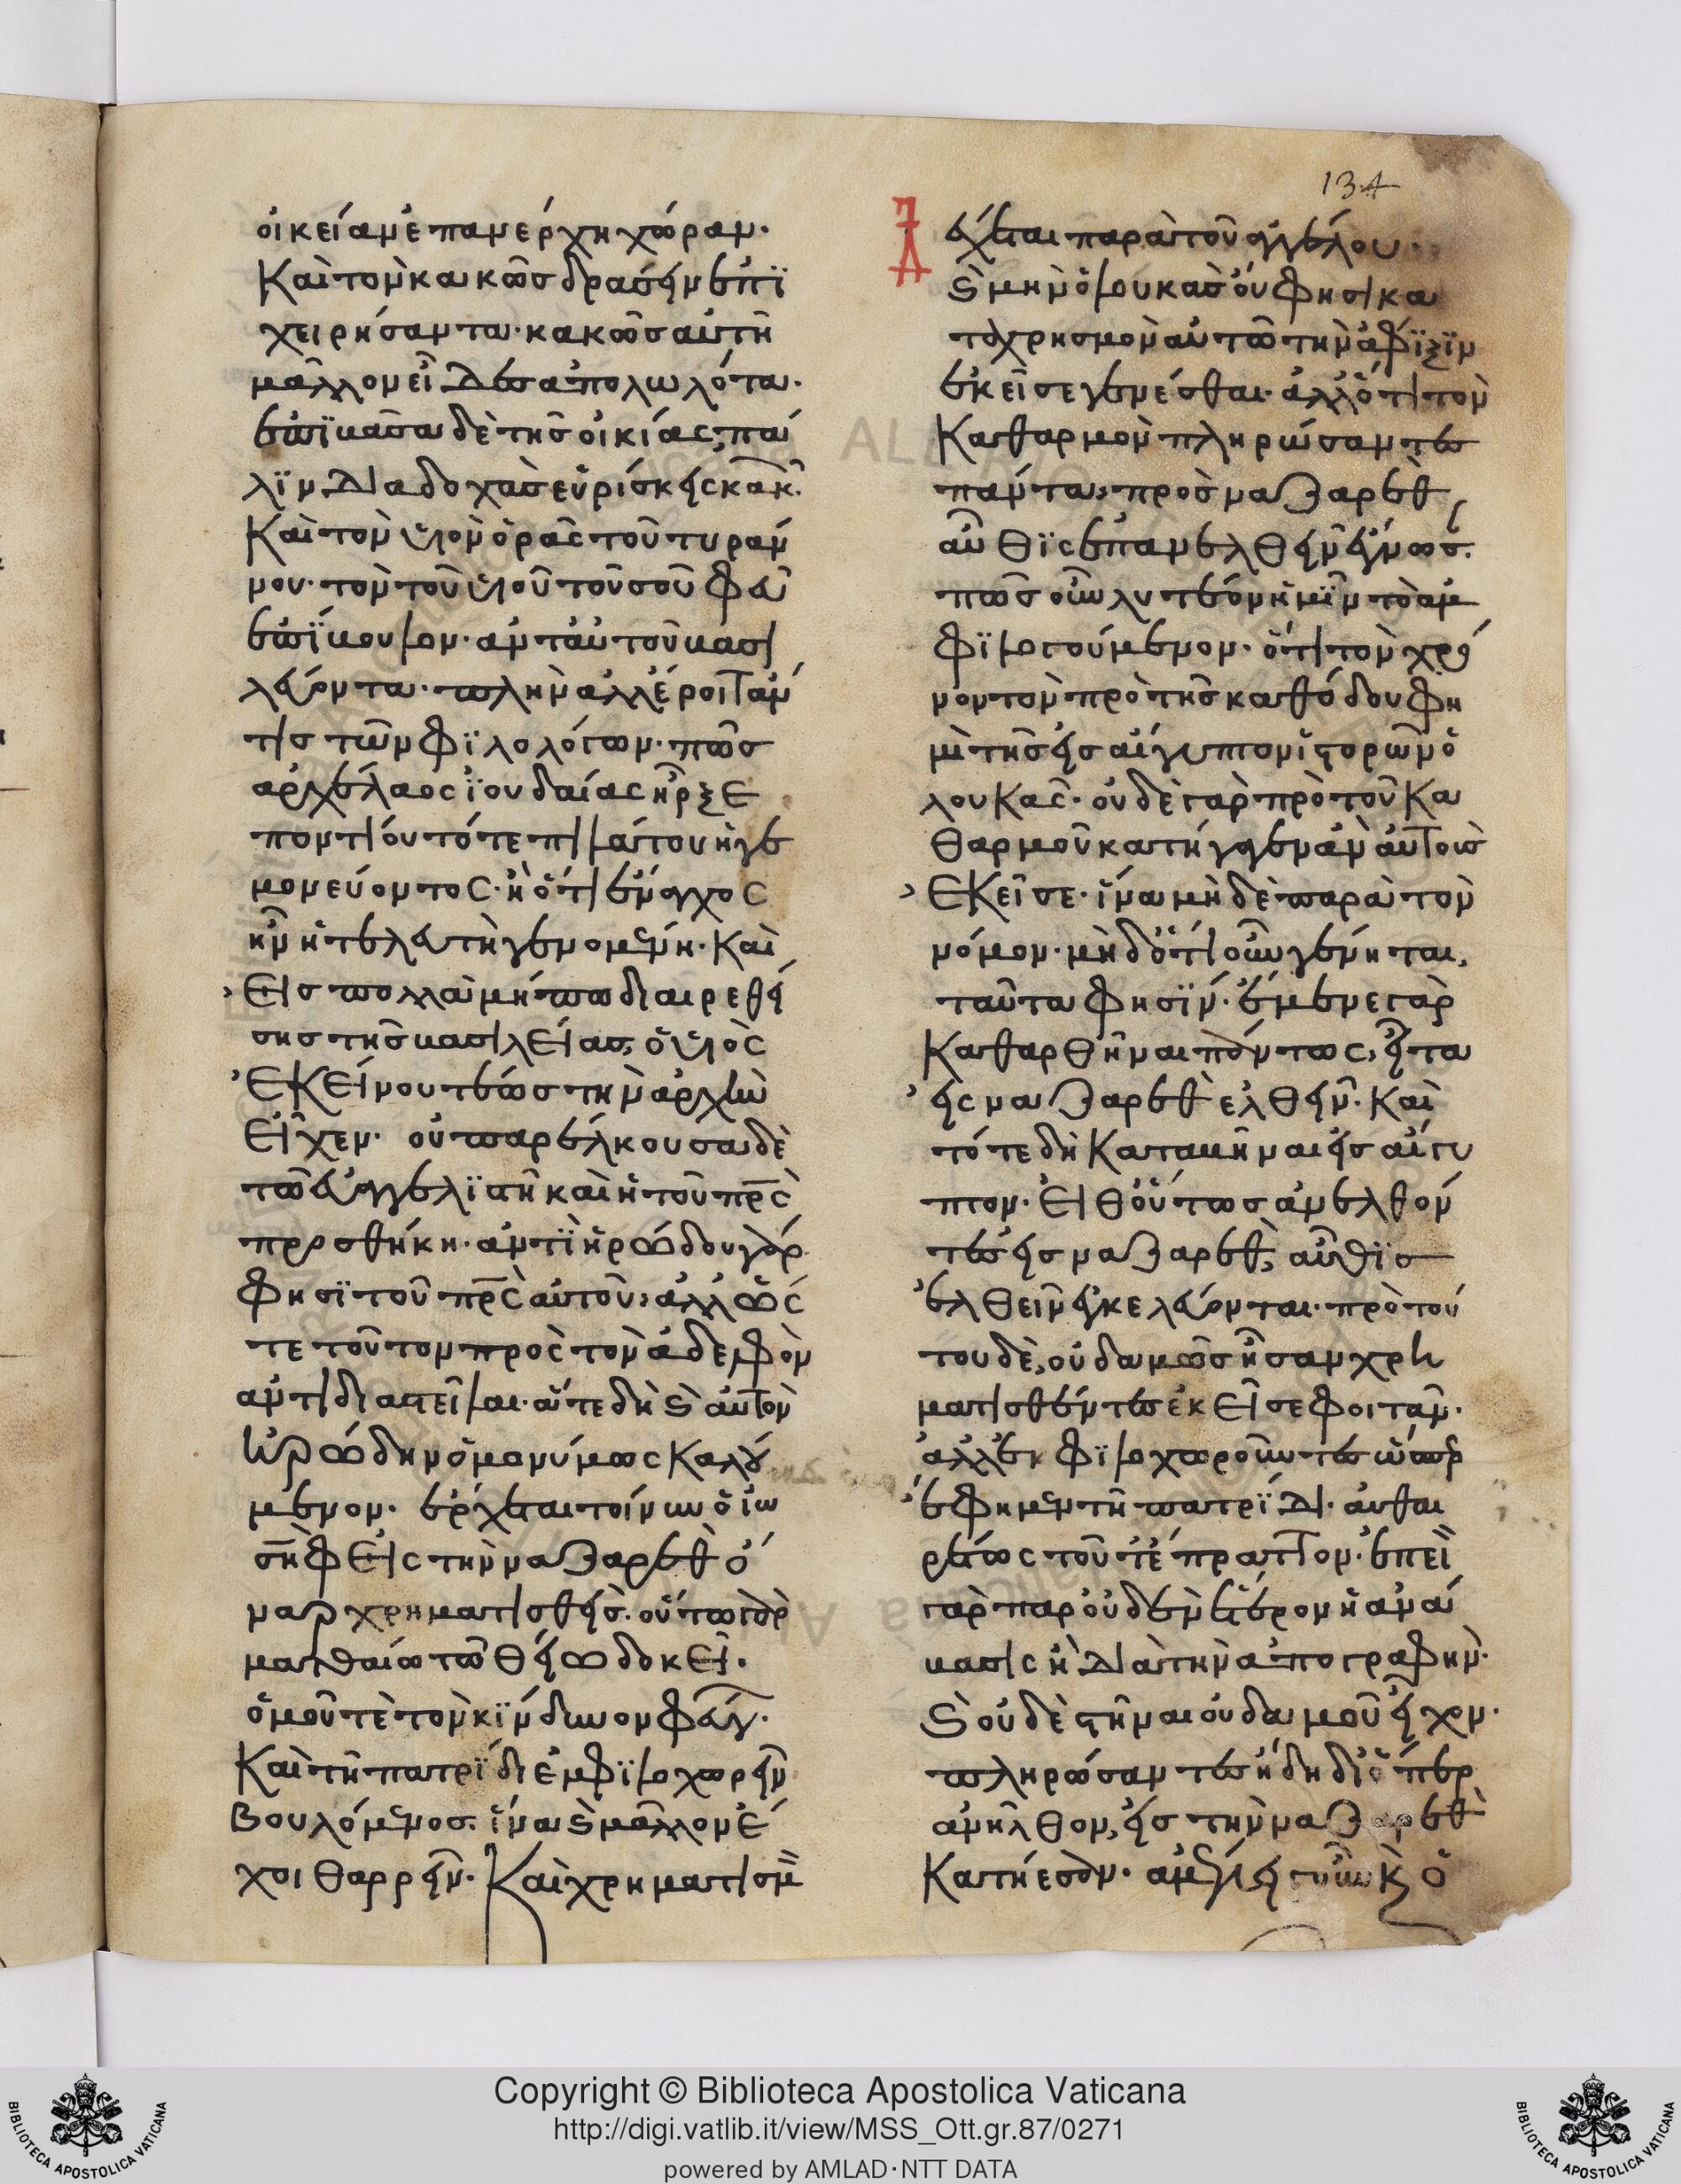 134
οἰκείαν ἐπανέρχη χώραν.
Καὶ τὸν κακῶς δρᾶσαι ἐπι
χειρήσαντα. κακῶς αὐτὴ
μᾶλλον εἶδες ἀπολωλότα.
ἐπιβᾶσα δὲ τῆς οἰκίας, πά
λιν διαδοχὰς εὑρίσκεις κακ.
Καὶ τὸν υἱὸν ὁρᾶς τοῦ τυράν
νου. τὸν τοῦ υἱοῦ τοῦ σοῦ φεῦ
ἐπίβουλον. ἀντ' αὐτοῦ βασι
λεύοντα. πλὴν ἀλλ' ἔροιτ' ἄν
τις τῶν φιλολόγων. πῶς
ἀρχέλαος ἰουδαίας ἦρξε
ποντίου τότε πιλάτου ἡγε
μονεύοντος. ἢ ὅτι ἔναγχος
ἦν ἡ τελευτὴ γενομένη. Καὶ
Εἰς πολλὰ μήπω διαιρεθεί
σης τῆς βασιλείας, ὁ υἱὸς
ἐκείνου τέως τὴν ἀρχὴν
Εἶχεν. οὐ παρέλκουσα δὲ
τῶ εὐαγγελιστῆ καὶ ἡ τοῦ πρς
προσθήκη. ἀντὶ ἡρώδου γὰρ
φησὶ τοῦ πρς αὐτοῦ, ἄλλως
τε τοῦτον πρὸς τὸν ἀδελφὸν
ἀντιδιαστεῖλαι. ἅτε δὴ καὶ αὐτὸν
ἡρώδην ὁμωνύμως καλού
μενον. ἔρχεται τοίνυν ὁ ἰω
σὴφ Εἰς τὴν ναζαρὲθ ὁ
ναρ χρηματισθεὶς. οὕτω γὰρ
ματθαίω τῶ θείω δοκεῖ.
ὁμοῦ τε τὸν κίνδυνον φεύγ.
Καὶ τῆ πατρίδι ἐμφιλοχωρεῖν
Βουλόμενος. ἵνα καὶ μᾶλλον ἔ
χοι θαρρεῖν. Καὶ χρηματισμὸν
δέχεται παρὰ τοῦ ἀγγέλου.
καὶ μὴν ὁ λουκᾶς οὔ φησι κα
τὰ χρησμὸν αὐτῶ τὴν ἄφιξιν
ἐκεῖσε γενέσθαι. ἀλλ' ὅτι τὸν
Καθαρμὸν πληρώσαντες
πάντα, πρὸς ναζαρὲθ
αὖθις ἐπανελθεῖν
πῶς οὖν λυτέον ἡμῖν τὸ ἀμ
φιλογούμενον. ὅτι τὸν χρό
νον τὸν πρὸ τῆς καθόδου φη
μὶ τῆς εἰς αἴγυπτον ἱστορῶν ὁ
λουκᾶς. οὐδὲ γὰρ πρὸ τοῦ Κα
θαρμοῦ κατήγαγεν ἂν αὐτοὺς
Ἐκεῖσε. ἵνα μὴ δὲ παρὰ τὸν
νόμον. μὴ δ' ὁτιοῦν γένηται,
ταῦτα φησίν. ἔμενε γὰρ
Καθαρθῆναι πάντως, εἶτα
εἰς ναζαρὲθ ἐλθεῖν. Καὶ
τότε δὴ Καταβῆναι εἰς αἴγυ
πτον. Εἶθ' οὕτως ἀνελθόν
τες εἰς ναζαρὲθ, αὖθις
ἐλθεῖν κελεύονται. πρὸ τού
του δὲ, οὐδαμῶς ἦσαν χρη
ματισθέντες ἐκεῖσε φοιτᾶν.
ἀλλ' ἐμφιλοχωροῦντες ὥσπερ
ἔφημεν τῆ πατρίδι. αὐθαι
ρέτως τοῦτ' ἔπραττον. ἐπεὶ
γὰρ παρ' οὐδὲν ἕτερον ἡ ἀνά
βασις ἢ διὰ τὴν ἀπογραφὴν.
καὶ οὐδὲ στῆναι οὐδαμοῦ εἶχον.
πληρώσαντες ἤδη δι' ὅπερ
ἀνῆλθον, εἰς τὴν ναζαρὲθ
Κατήεσαν.
Copyright © Biblioteca Apostolica Vaticana
http://digi.vatlib.it/view/MSS_Ott.gr.87/0271
powered by AMLAD·NTT DATA
BIBLIOTECA APOSTOLICA VATICANA
BIBLIOTECA APOSTOLICA VATICANA